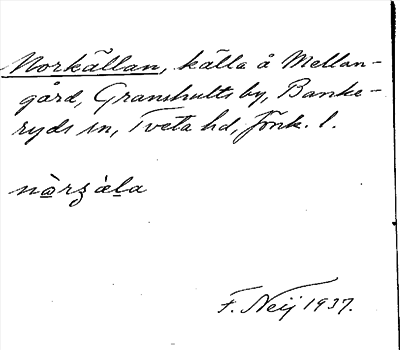 Norkällan, källa å Mellan-
gård, Granshults by, Banke-
ryds sn, Tveta hd, Jönk. l.
nò̱rʒàḻa
F. Neij 1937.